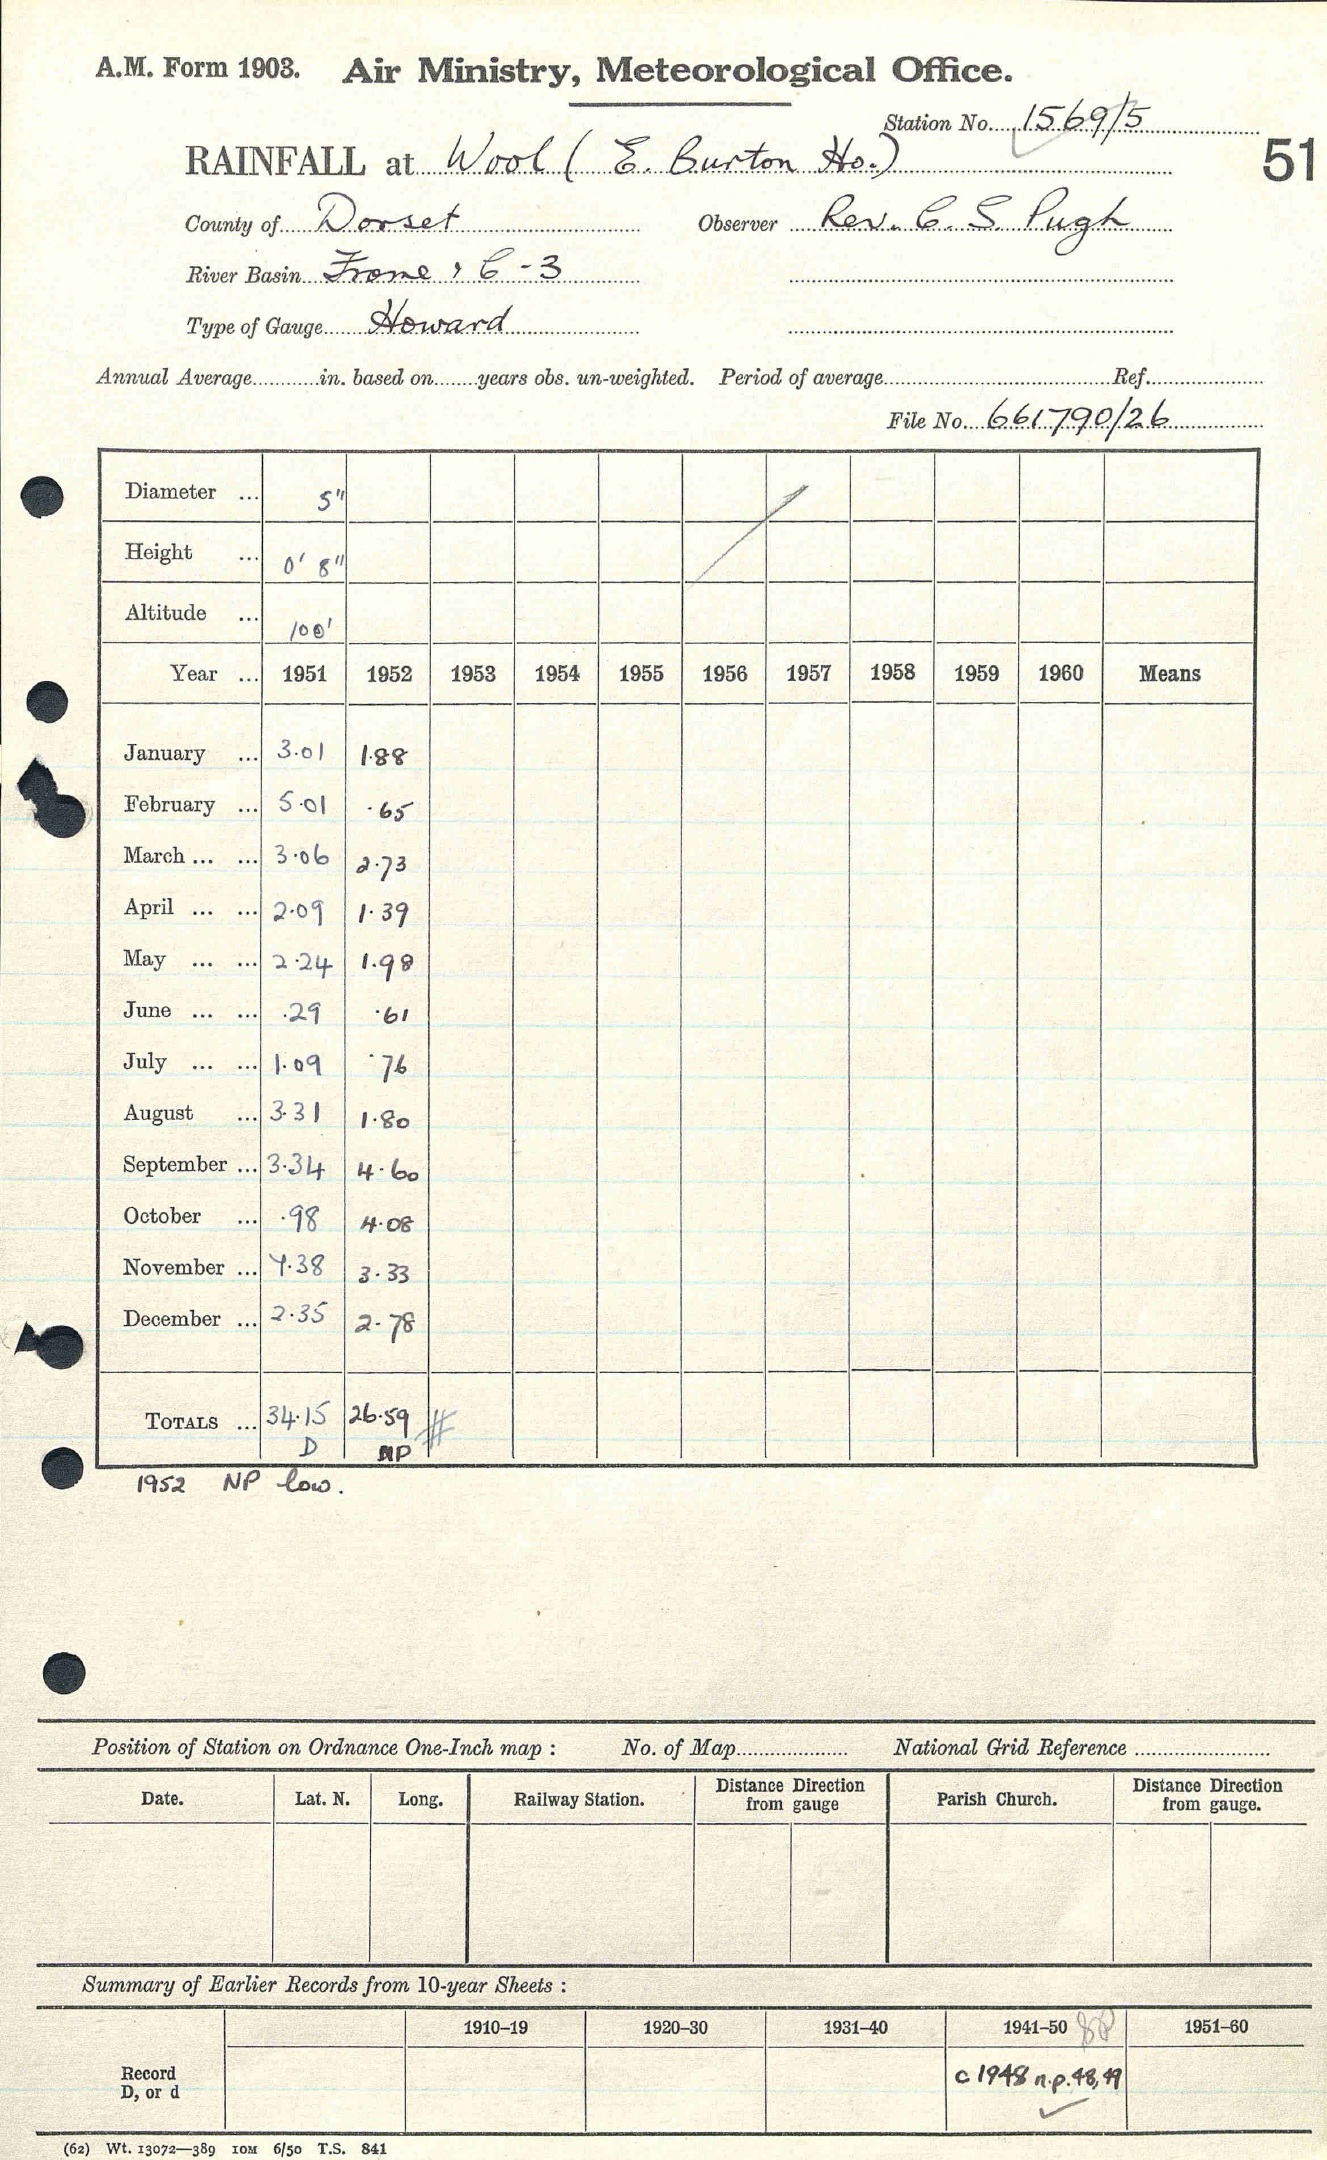 A.M. Form 1903. Air Ministry, Meteorological Office.
Station No. 1569/5
RAINFALL at Wool ( E. Burton Ho.)
51
County of Dorset Observer Rev. C. S. Pugh
River Basin Frome & C-3
Type of Gauge Howard
Annual Average............in. based on........years obs. un-weighted. Period of average........................Ref...............
File No. 661790/26
Diameter ... 5"
Height ... 0' 8"
Altitude ... 100'
Year ... 1951 1952 1953 1954 1955 1956 1957 1958 1959 1960 Means
January ... 3.01 1.88
February ... 5.01 .65
March ... ... 3.06 2.73
April ... ... 2.09 1.39
May ... ... 2.24 1.98
June ... ... .29 .61
July ... ... 1.09 .76
August ... 3.31 1.80
September ... 3.34 4.60
October ... .98 4.08
November ... 7.38 3.33
December ... 2.35 2.78
TOTALS ... 34.15 26.59 #
D NP
1952 NP low.
Position of Station on Ordnance One-Inch map : No. of Map.................... National Grid Reference ........................
Date. Lat. N. Long. Railway Station. Distance Direction from gauge Parish Church. Distance Direction from gauge.
Summary of Earlier Records from 10-year Sheets :
1910–19 1920–30 1931–40 1941–50 1951–60
Record
D, or d
c 1948 n.p. 48, 49
(62) Wt. 13072—389 10M 6/50 T.S. 841